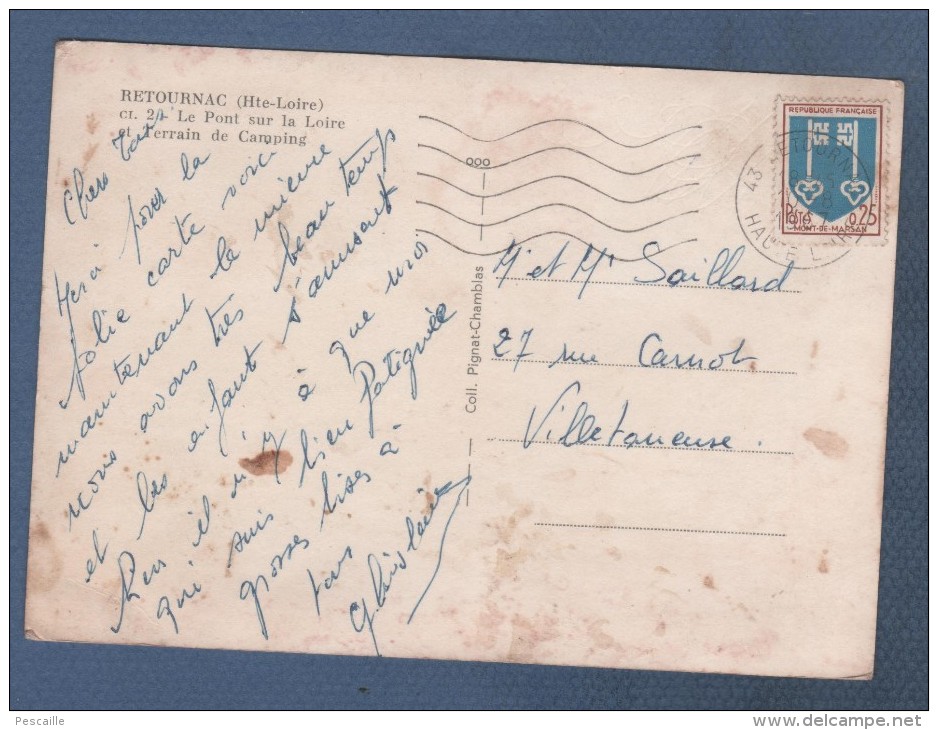 RETOURNAC (Hte-Loire)
CI. 2 - Le Pont sur la Loire
et Terrain de Camping
Chers tous
Merci pour la
jolie carte voici
maintenant la mienne
nous avons très beau temps
et les enfant s'amusent
bien il n'y à que moi
qui suis bien fatiguée
grosses bises à
tous
Ghislaine
Coll. Pignat-Chamblas
REPUBLIQUE FRANÇAISE
POSTES 0,25
MONT-DE-MARSAN
43 RETOURNAC
HAUTE LOIRE
Mr et Me Saillard
27 rue Carnot
Villetaneuse.
Pescaille
www.delcampe.net